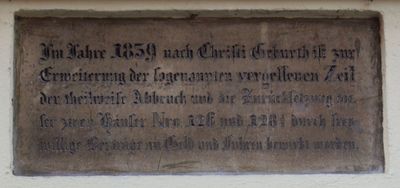 Im Jahre 1839 nach Christi Geburth ist zur
Erweiterung der sogenannten vergessenen Zeil
der theilweise Abbruch und die Zurücksetzung die-
ser zwey Häuser Nro. 126 und 128 durch frey-
willige Beträge an Geld und Fuhren bewirkt worden.